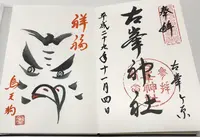 奉拝
古峯ヶ原
古峯神社
平成二十九年十一月四日
祥福
烏天狗